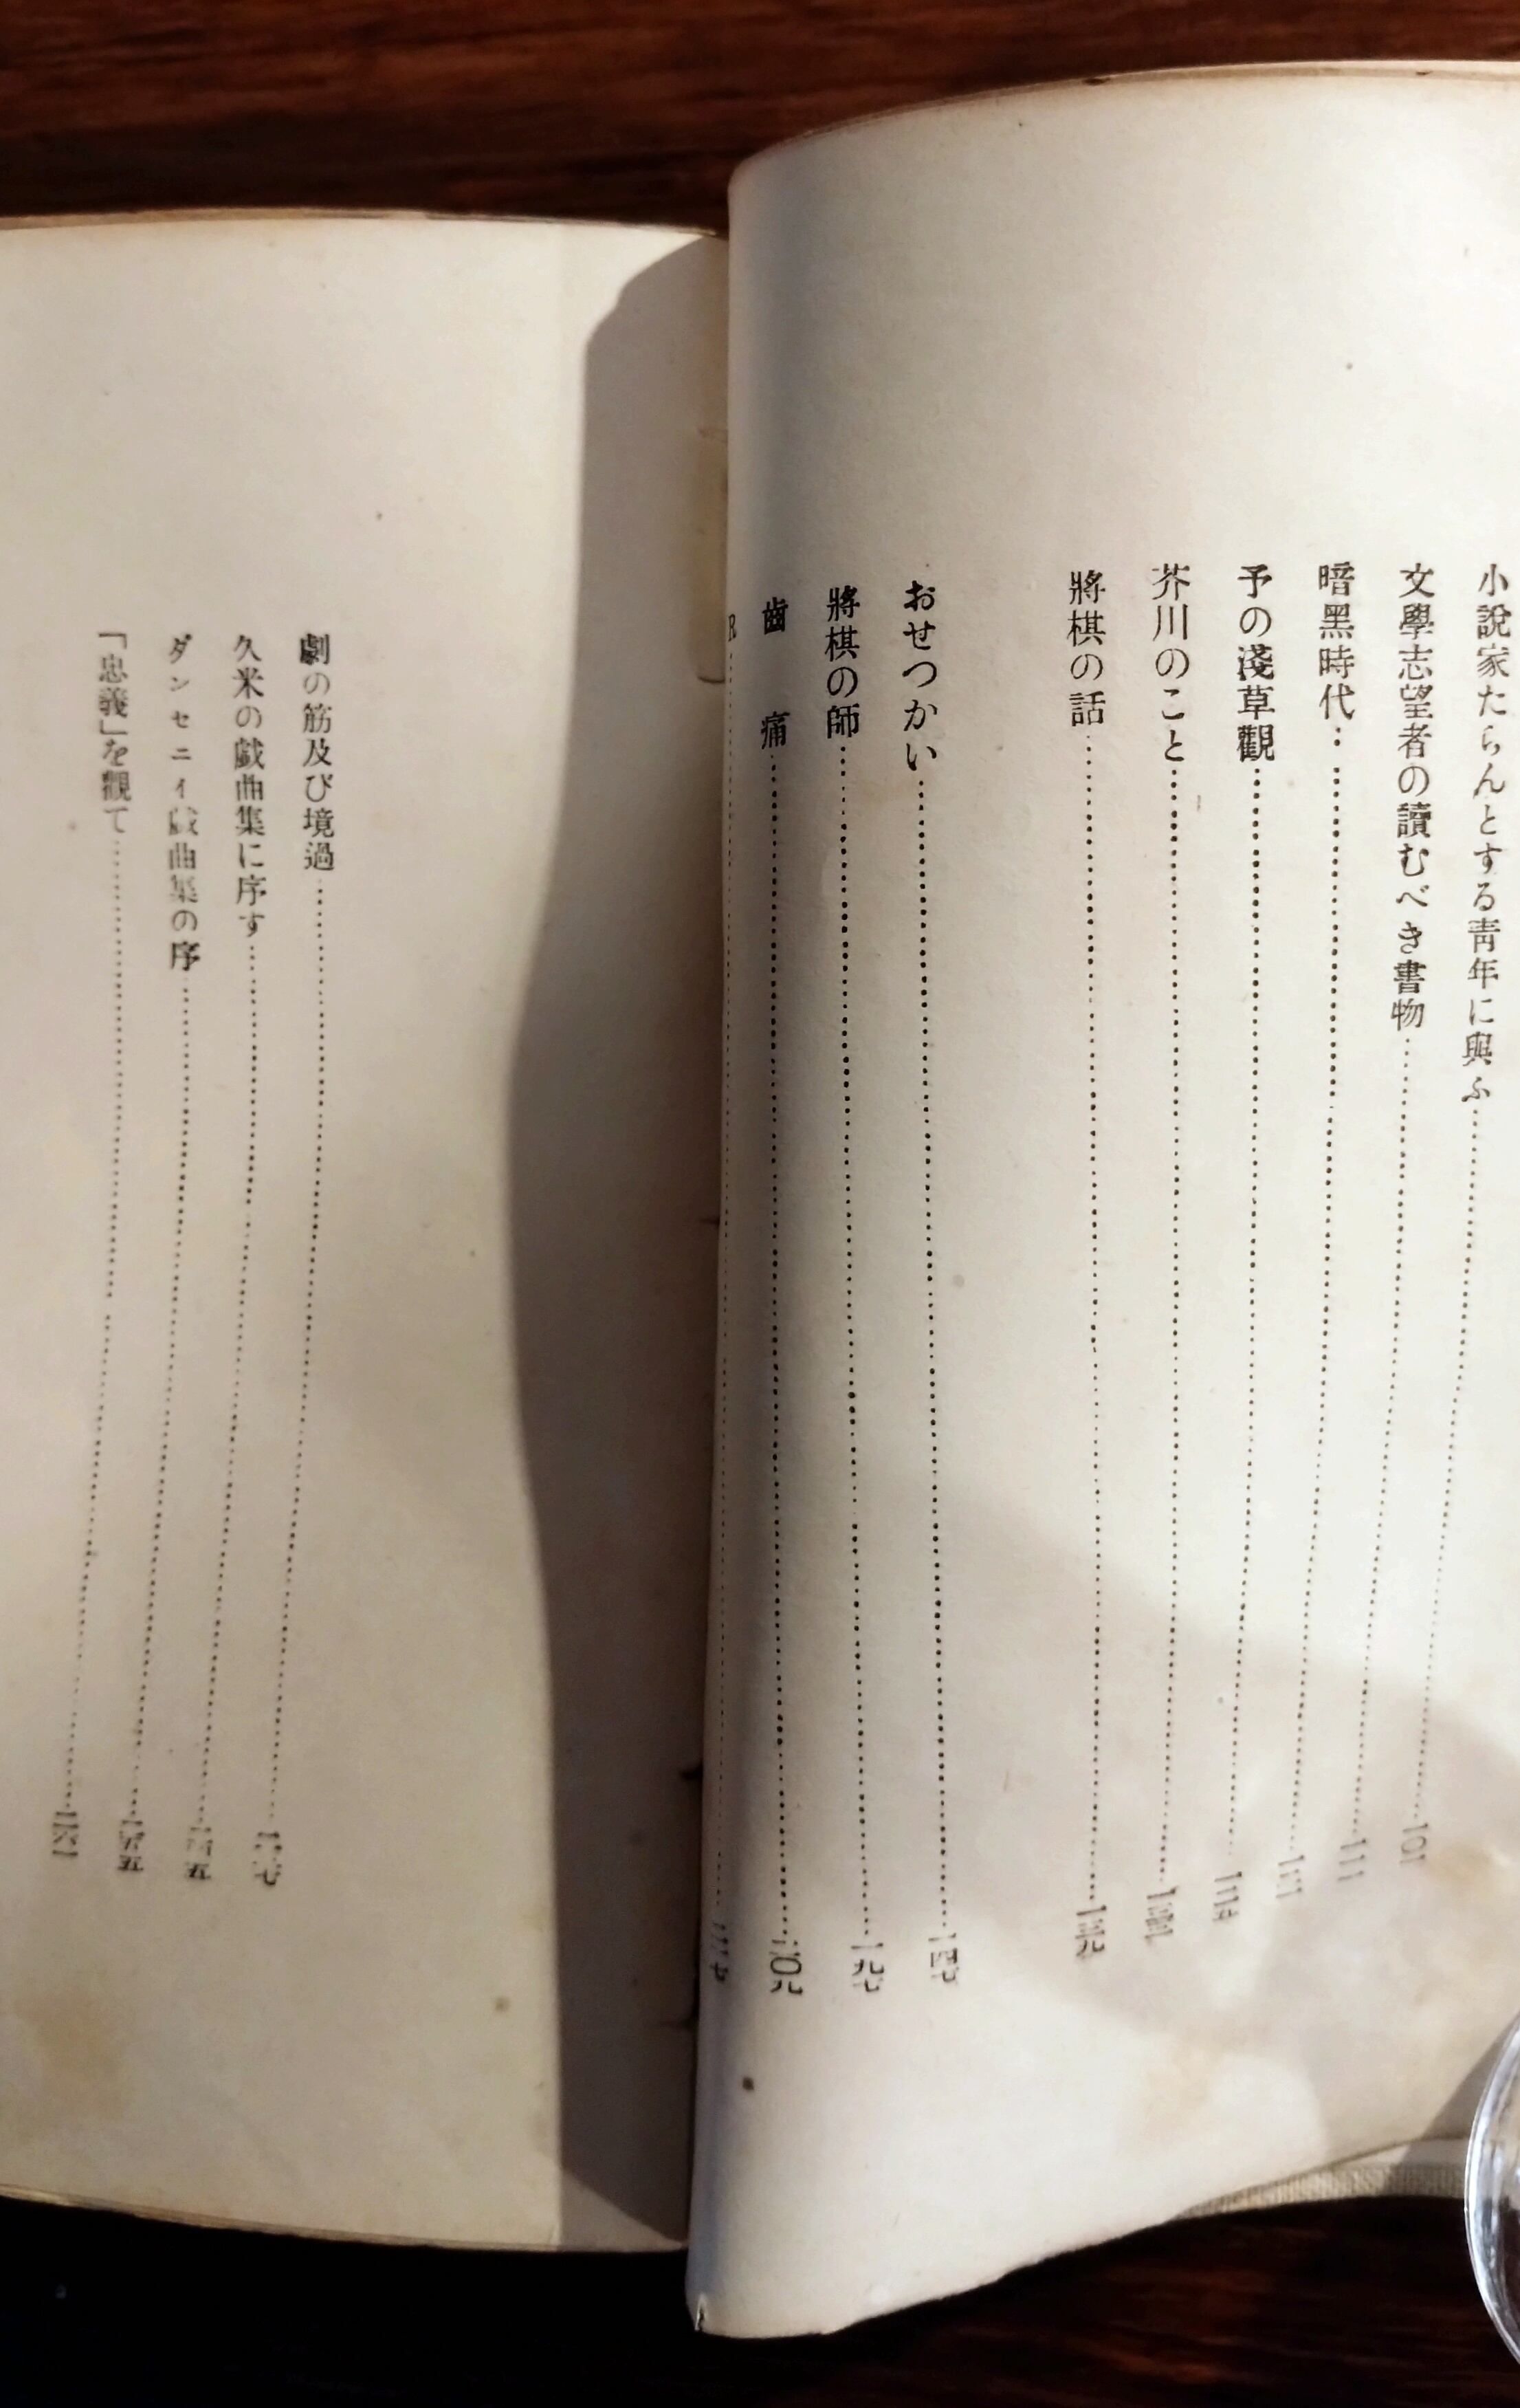 小說家たらんとする靑年に與ふ……一〇一
文學志望者の讀むべき書物……一一一
暗黑時代……
予の淺草觀……
芥川のこと……
將棋の話……一三九
おせつかい……一四七
將棋の師……一九七
齒痛……二〇九
R……
劇の筋及び境遇……
久米の戯曲集に序す……
ダンセニイ戯曲集の序……
「忠義」を觀て……